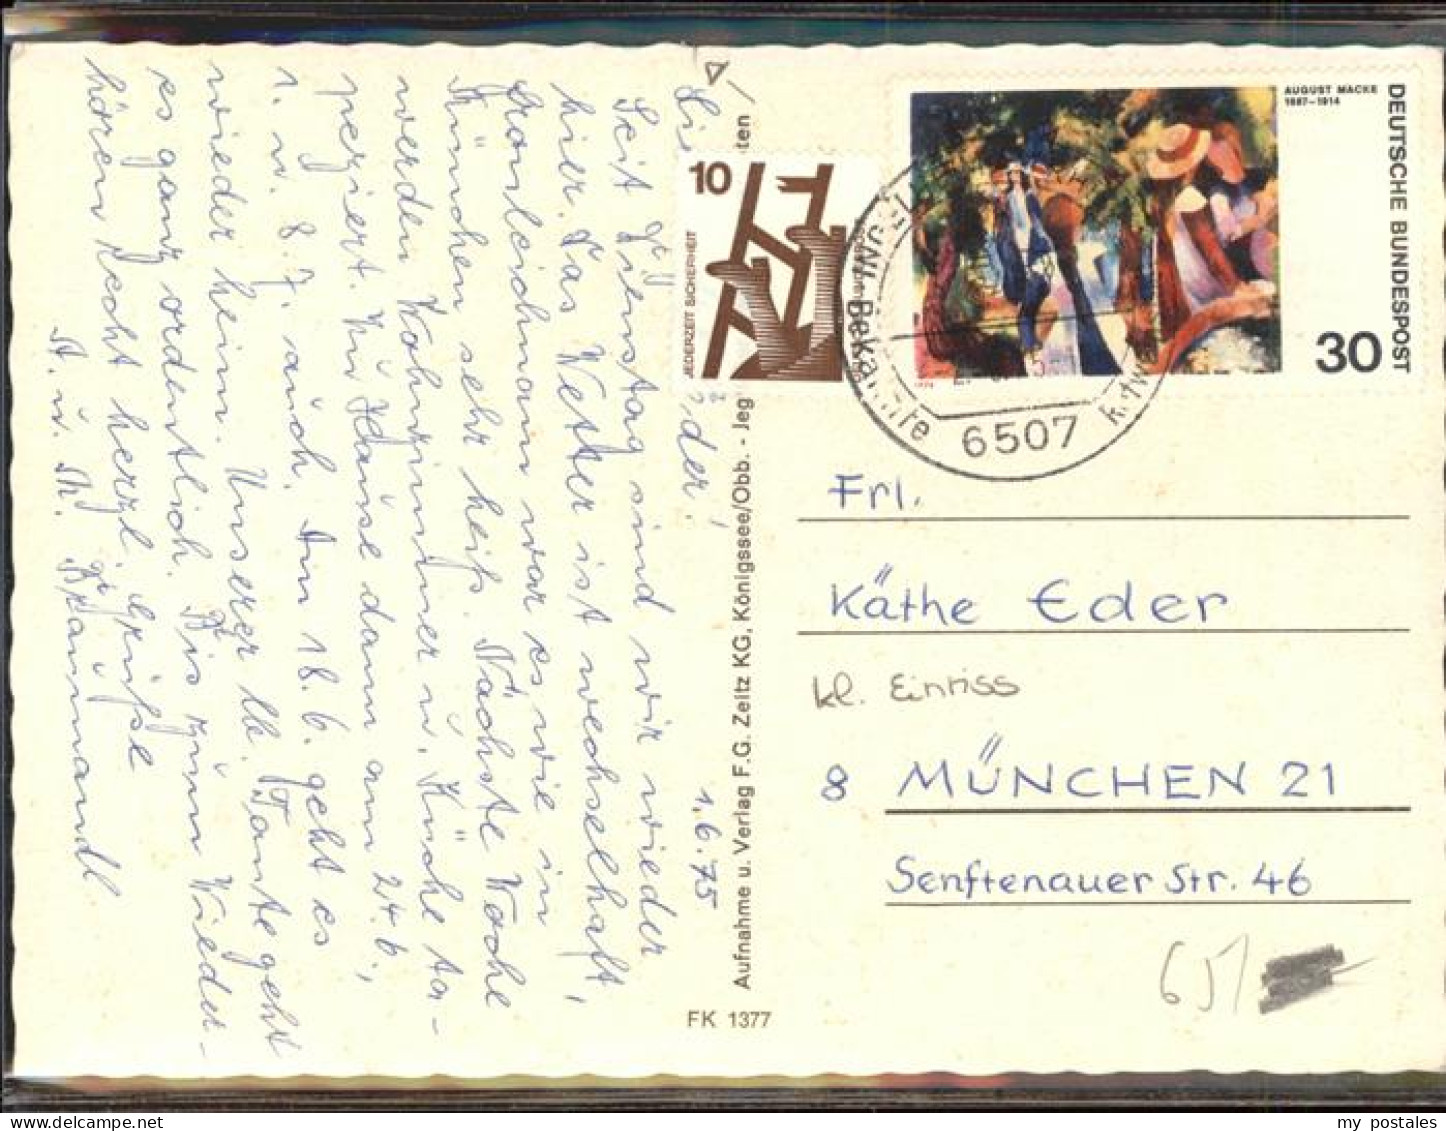 1.6.75
der!
Seit Dienstag sind wir wieder
hier. Das Wetter ist wechselhaft,
Fronleichnam war es wie in
München sehr heiß. Nächste Woche
werden Wohnzimmer u. Küche ta-
peziert. Zu Hause dann am 24.6.,
1. u. 8.7. auch. Am 18.6. geht es
wieder heim. Unserer lb. Tante geht
es ganz ordentlich. Bis zum Wieder-
hören recht herzl. Grüße
A. u. M. Bräumandl.
Aufnahme u. Verlag F.G. Zeitz KG, Königssee/Obb. - Jeg
ten
FK 1377
10
JEDERZEIT SICHERHEIT
AUGUST MACKE
1887-1914
DEUTSCHE BUNDESPOST
30
1974
6507
Frl.
Käthe Eder
kl. Einriss
8 MÜNCHEN 21
Senftenauer Str. 46
651
my postales